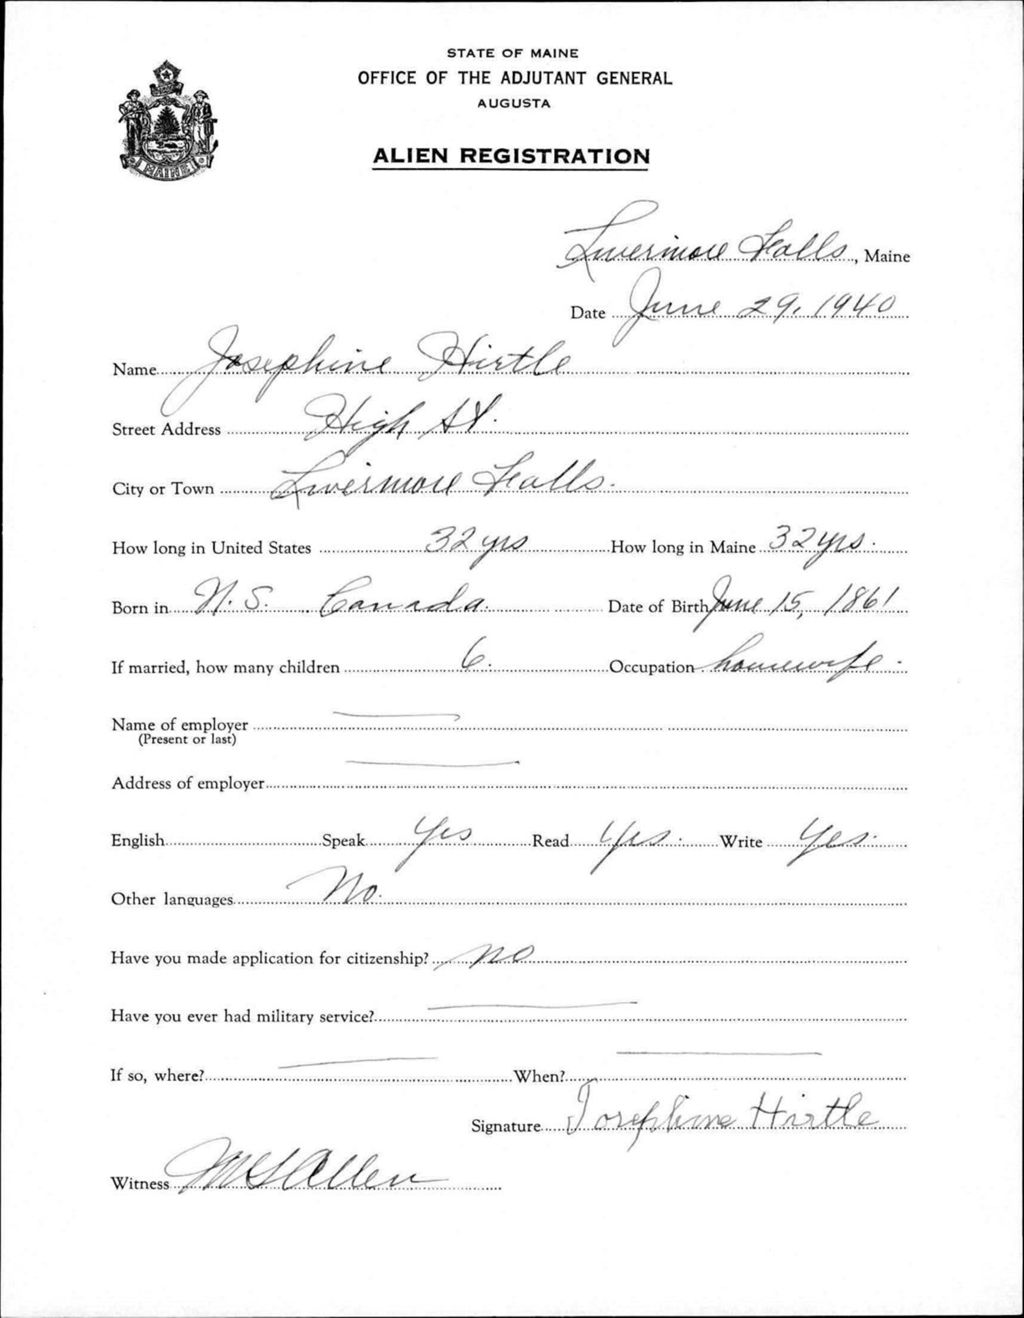 STATE OF MAINE
OFFICE OF THE ADJUTANT GENERAL
AUGUSTA
ALIEN REGISTRATION
MAINE
Livermore Falls, Maine
Date June 29, 1940
Name Josephine Hirtle
Street Address High St.
City or Town Livermore Falls.
How long in United States 32 yrs How long in Maine 32 yrs.
Born in N. S. Canada. Date of Birth June 15, 1861
If married, how many children 6. Occupation housewife.
Name of employer
(Present or last)
Address of employer
English Speak Yes Read Yes. Write Yes.
Other languages No.
Have you made application for citizenship? no
Have you ever had military service?
If so, where? When?
Signature Josephine Hirtle
Witness M S Allen